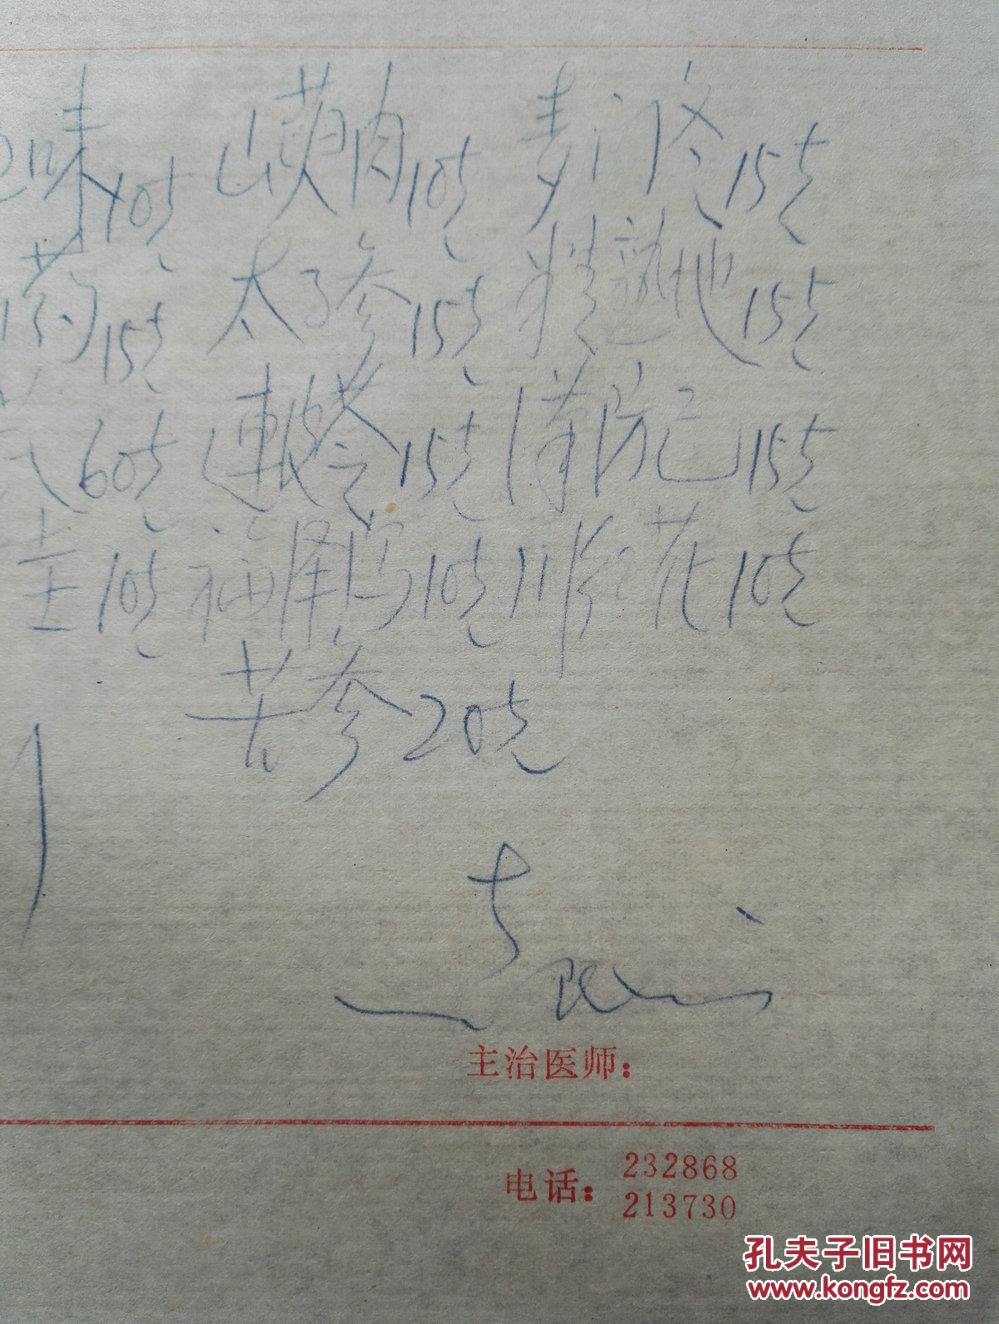 味10克 山萸肉10克 麦门冬15克
药15克 太子参15克 熟地15克
60克 連皮苓15克 漢防己15克
10克 福泽泻10克 川红花10克
苦参20克
主治医师：
电话：232868
213730
孔夫子旧书网
www.kongfz.com